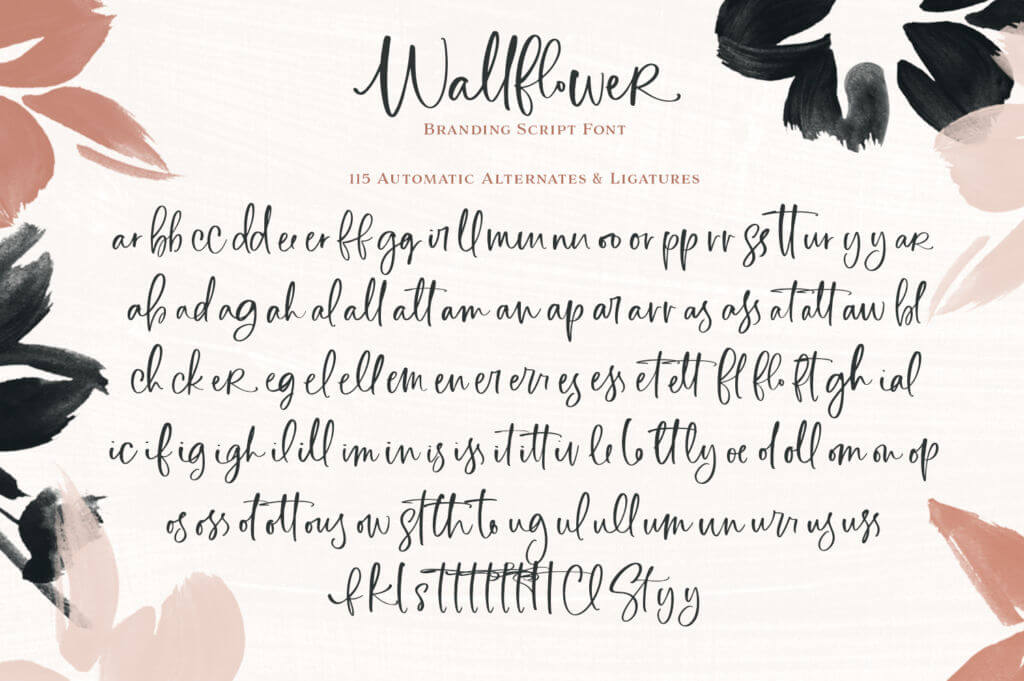 Wallflower
Branding Script Font
115 Automatic Alternates & Ligatures
ar bb cc dd ee er ff gg ir ll mm nn oo or pp rr ss tt ur y y ar
ab ad ag ah al all att am an ap ar arr as ass at att aw bl
ch ck er eg el ell em en er err es ess et ett fl flo ft gh ial
ic if ig igh il ill im in is iss it itt iv le lo ltt ly oe ol oll om on op
os oss ot ott ous ow st th to ug ul ull um un ur urr us uss
f k l s t t t t t t t Cl St y y